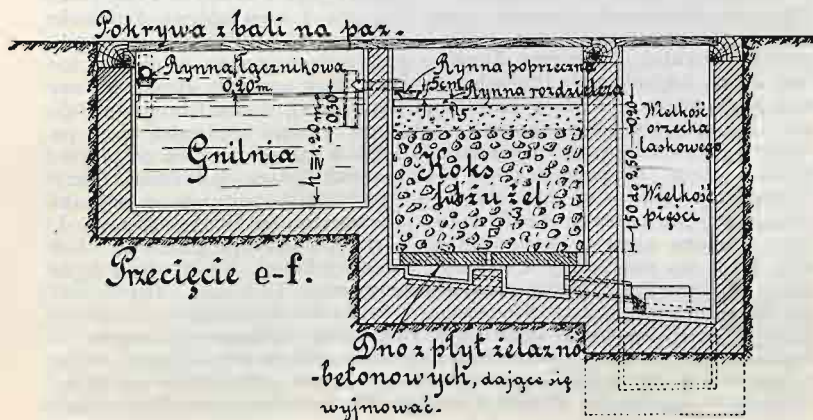 Pokrywa z bali na paz.
Rynna łącznikowa
0,20 m.
0,30
h ≡ 1.20 m
Gnilnia
Rynna poprzeczna
5cm
Rynna rozdzielcza
15
Koks
lub żużel
0,20
1,50 do 2,50
Wielkość
orzecha
laskowego
Wielkość
pięści
Przecięcie e-f.
Dno z płyt żelazno
-betonowych, dające się
wyjmować.